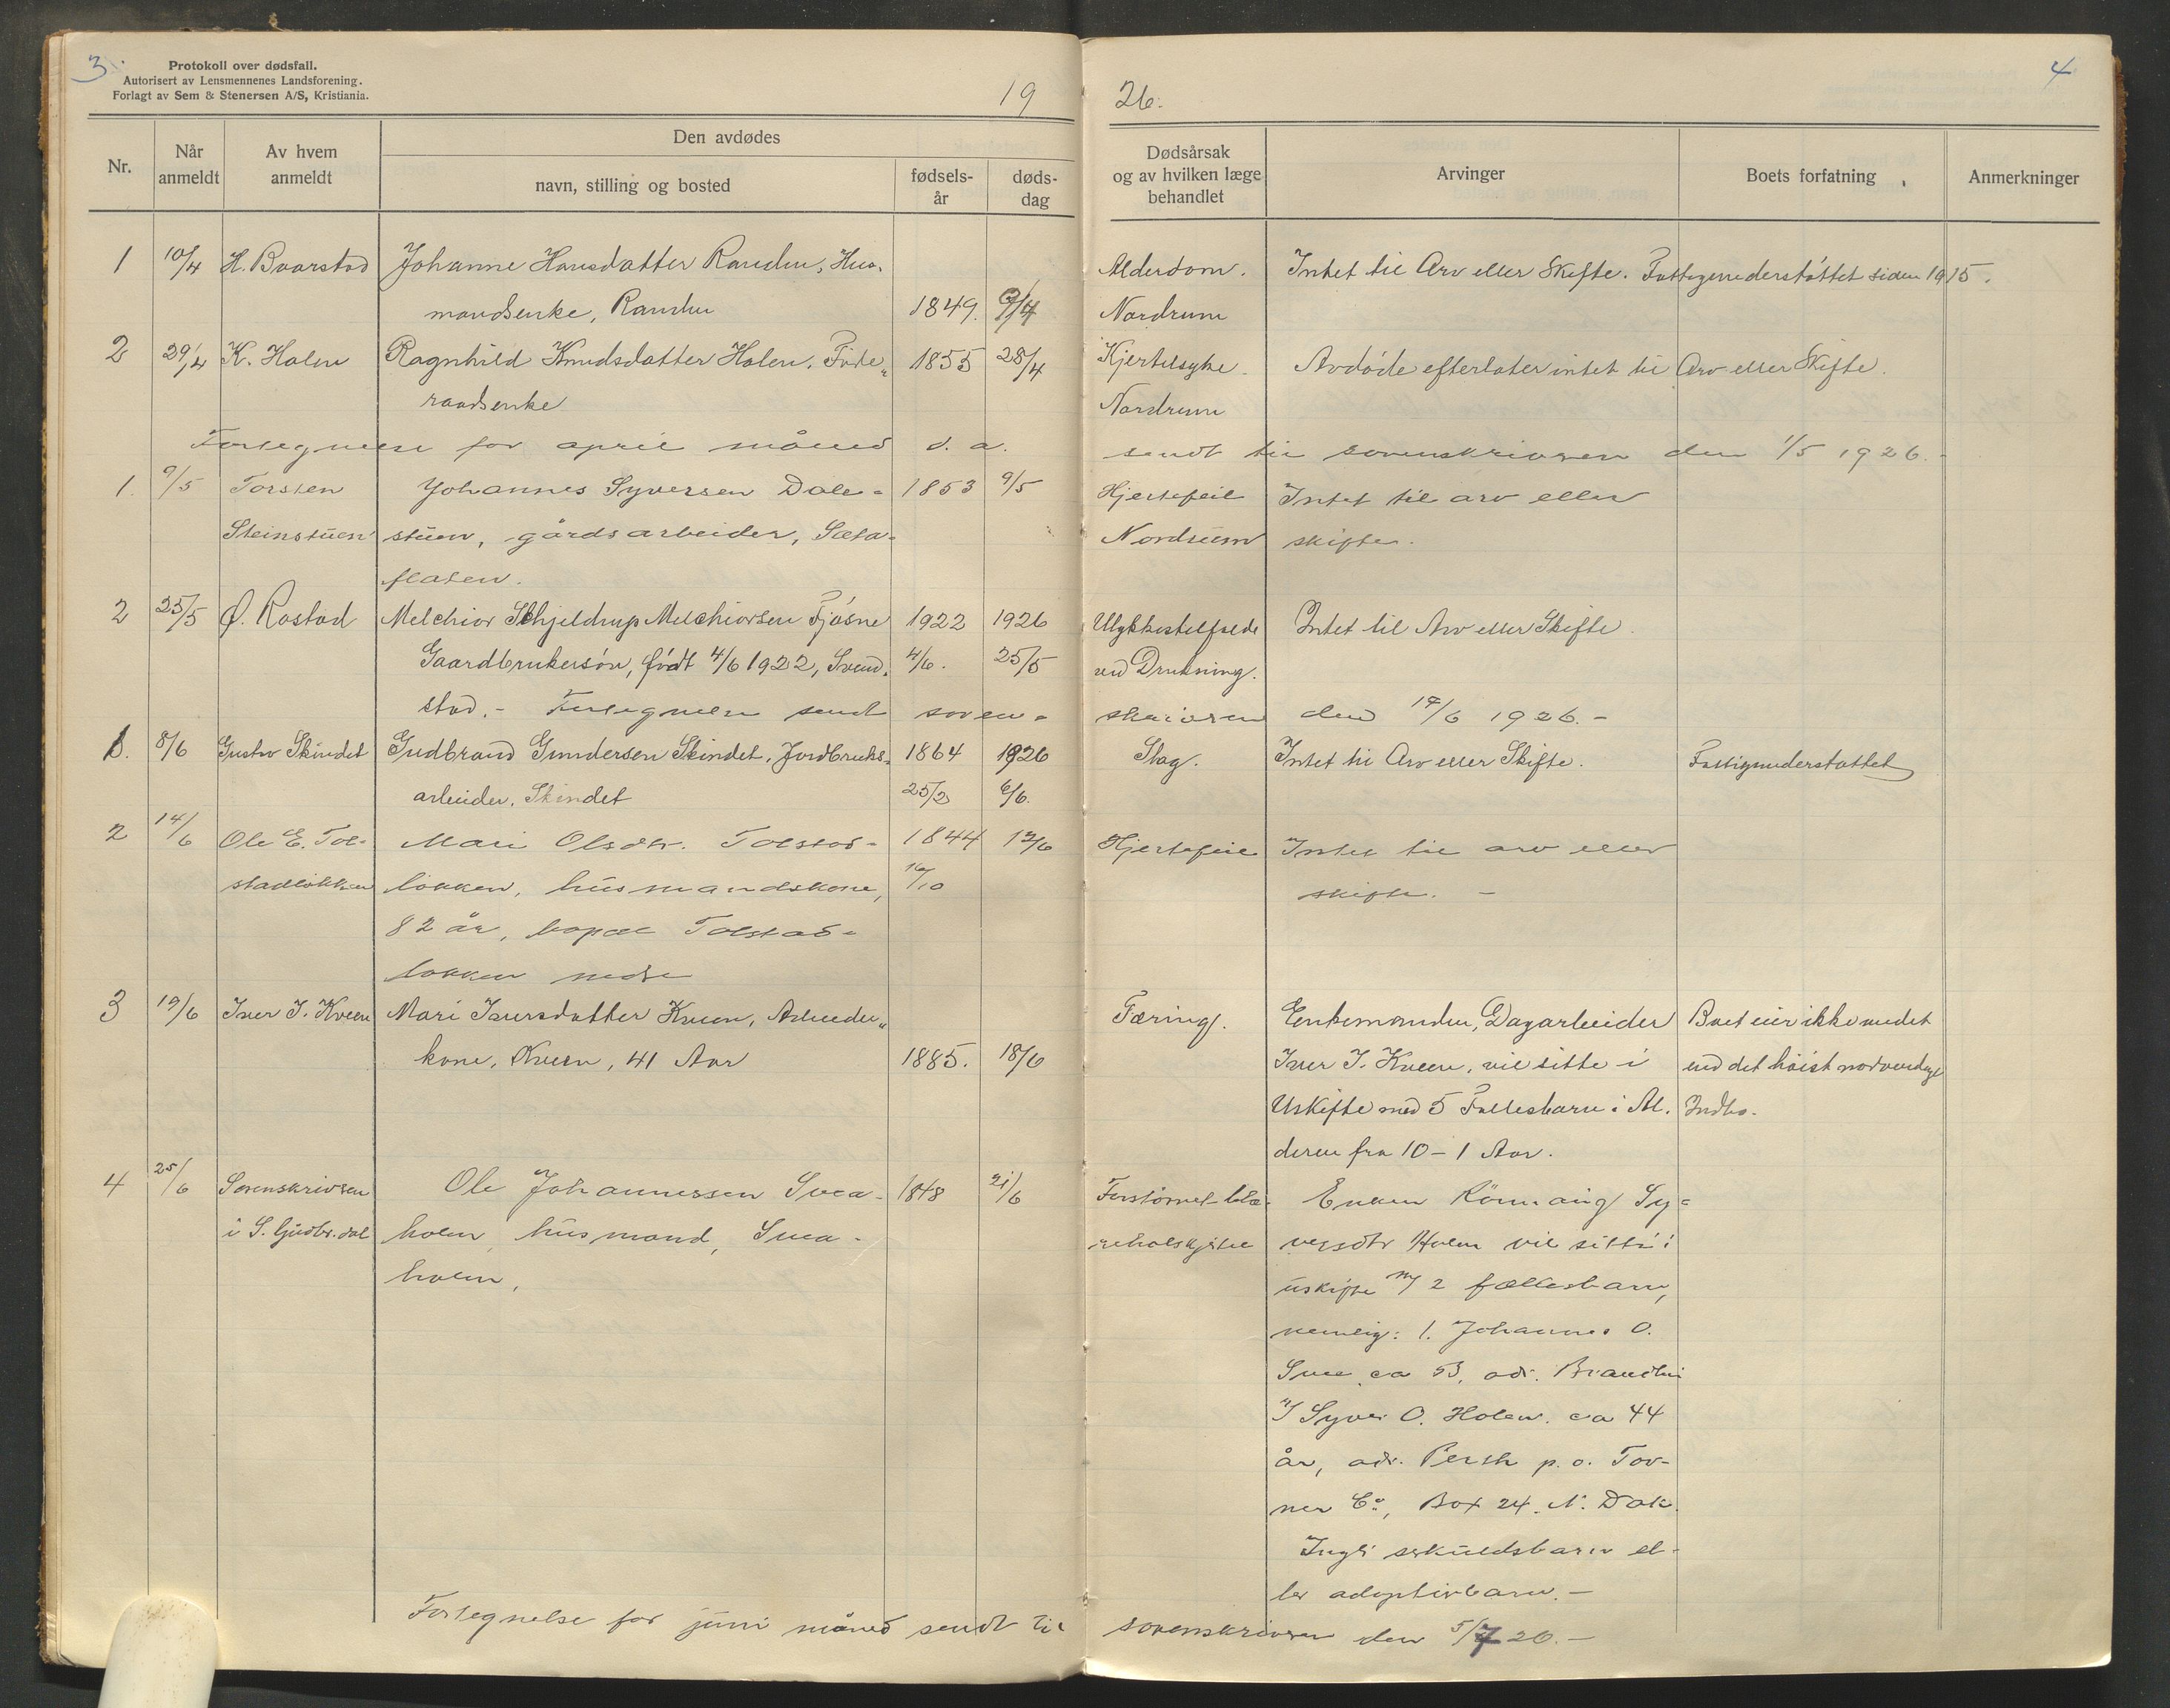 3.
Protokoll over dødsfall.
Autorisert av Lensmennenes Landsforening.
Forlagt av Sem & Stenersen A/S, Kristiania.
19
Nr.
Når anmeldt
Av hvem anmeldt
Den avdødes
navn, stilling og bosted
fødsels-år
døds-dag
1 10/4 H. Baarstad Johanne Hansdatter Randen, Hus-
mandsenke, Randen 1849. 9/4
2 29/4 K. Holen Ragnhild Knudsdatter Holen, Føde- 1855 28/4
raadsenke
Fortegnelse for april måned d. a.
1. 9/5 Torsten Johannes Syversen Dale- 1853 9/5
Steinstuen stuen, gårdsarbeider, Sæta-
flaten.
2 25/5 Ø. Rostad Melchior Schjeldrup Melchiorsen Fjøsne 1922 1926
Gaardbrukersøn, født 4/6 1922, Svend- 4/6. 25/5
stad. - Fortegnelse sendt soren-
1. 8/6 Gustav Skindet Gudbrand Gundersen Skindet, Jordbruks- 1864 1926
arbeider, Skindet 25/2 6/6.
2 14/6 Ole E. Tol- Mari Olsdtr. Tolstad- 1844 12/6
stadløkken løkken, husmandskone, 16/10
82 år, bopæl Tolstad-
løkken nedre
3 19/6 Iver I. Kveen Mari Iversdatter Kveen, Arbeider-
kone, Kveen, 41 Aar 1885. 18/6
4 25/6 Sorenskriveren Ole Johannessen Svea- 1848 21/6
i S. Gudbr.dal holen, husmand, Svea-
holen,
Fortegnelse for juni måned sendt til
4
26.
Dødsårsak og av hvilken læge behandlet
Arvinger
Boets forfatning
Anmerkninger
Alderdom. Intet til Arv eller Skifte. Fattigunderstøttet siden 1915.
Nordrum
Kjertelsyke. Avdøde efterlater intet til Arv eller Skifte.
Nordrum
sendt til sorenskriveren den 1/5 1926.-
Hjertefeil Intet til arv eller
Nordrum skifte.
Ulykkestilfælde Intet til Arv eller Skifte.
ved Drukning.
skriveren den 17/6 1926.-
Slag. Intet til Arv eller Skifte. Fattigunderstøttet
Hjertefeil Intet til arv eller
skifte. -
Tæring. Enkemanden, Dagarbeider Boet eier ikke andet
Iver I. Kveen, vil sitte i end det høist nødvendige
Uskifte med 5 Fællesbarn i Al- Indbo.
deren fra 10-1 Aar.
Forstørret blæ- Enken Rønnaug Sy-
rehalskjertel versdtr Holen vil sitte i
uskifte m/ 2 fællesbarn,
nemlig: 1. Johannes O.
Svee ca 53, adr.
Syver O. Holen. ca 44
år, adr. Perth p. o. Tow-
ner Co, Box 24. N. Dak.
Ingen særkuldsbarn el-
ler adoptivbarn.-
sorenskriveren den 5/7 26.-